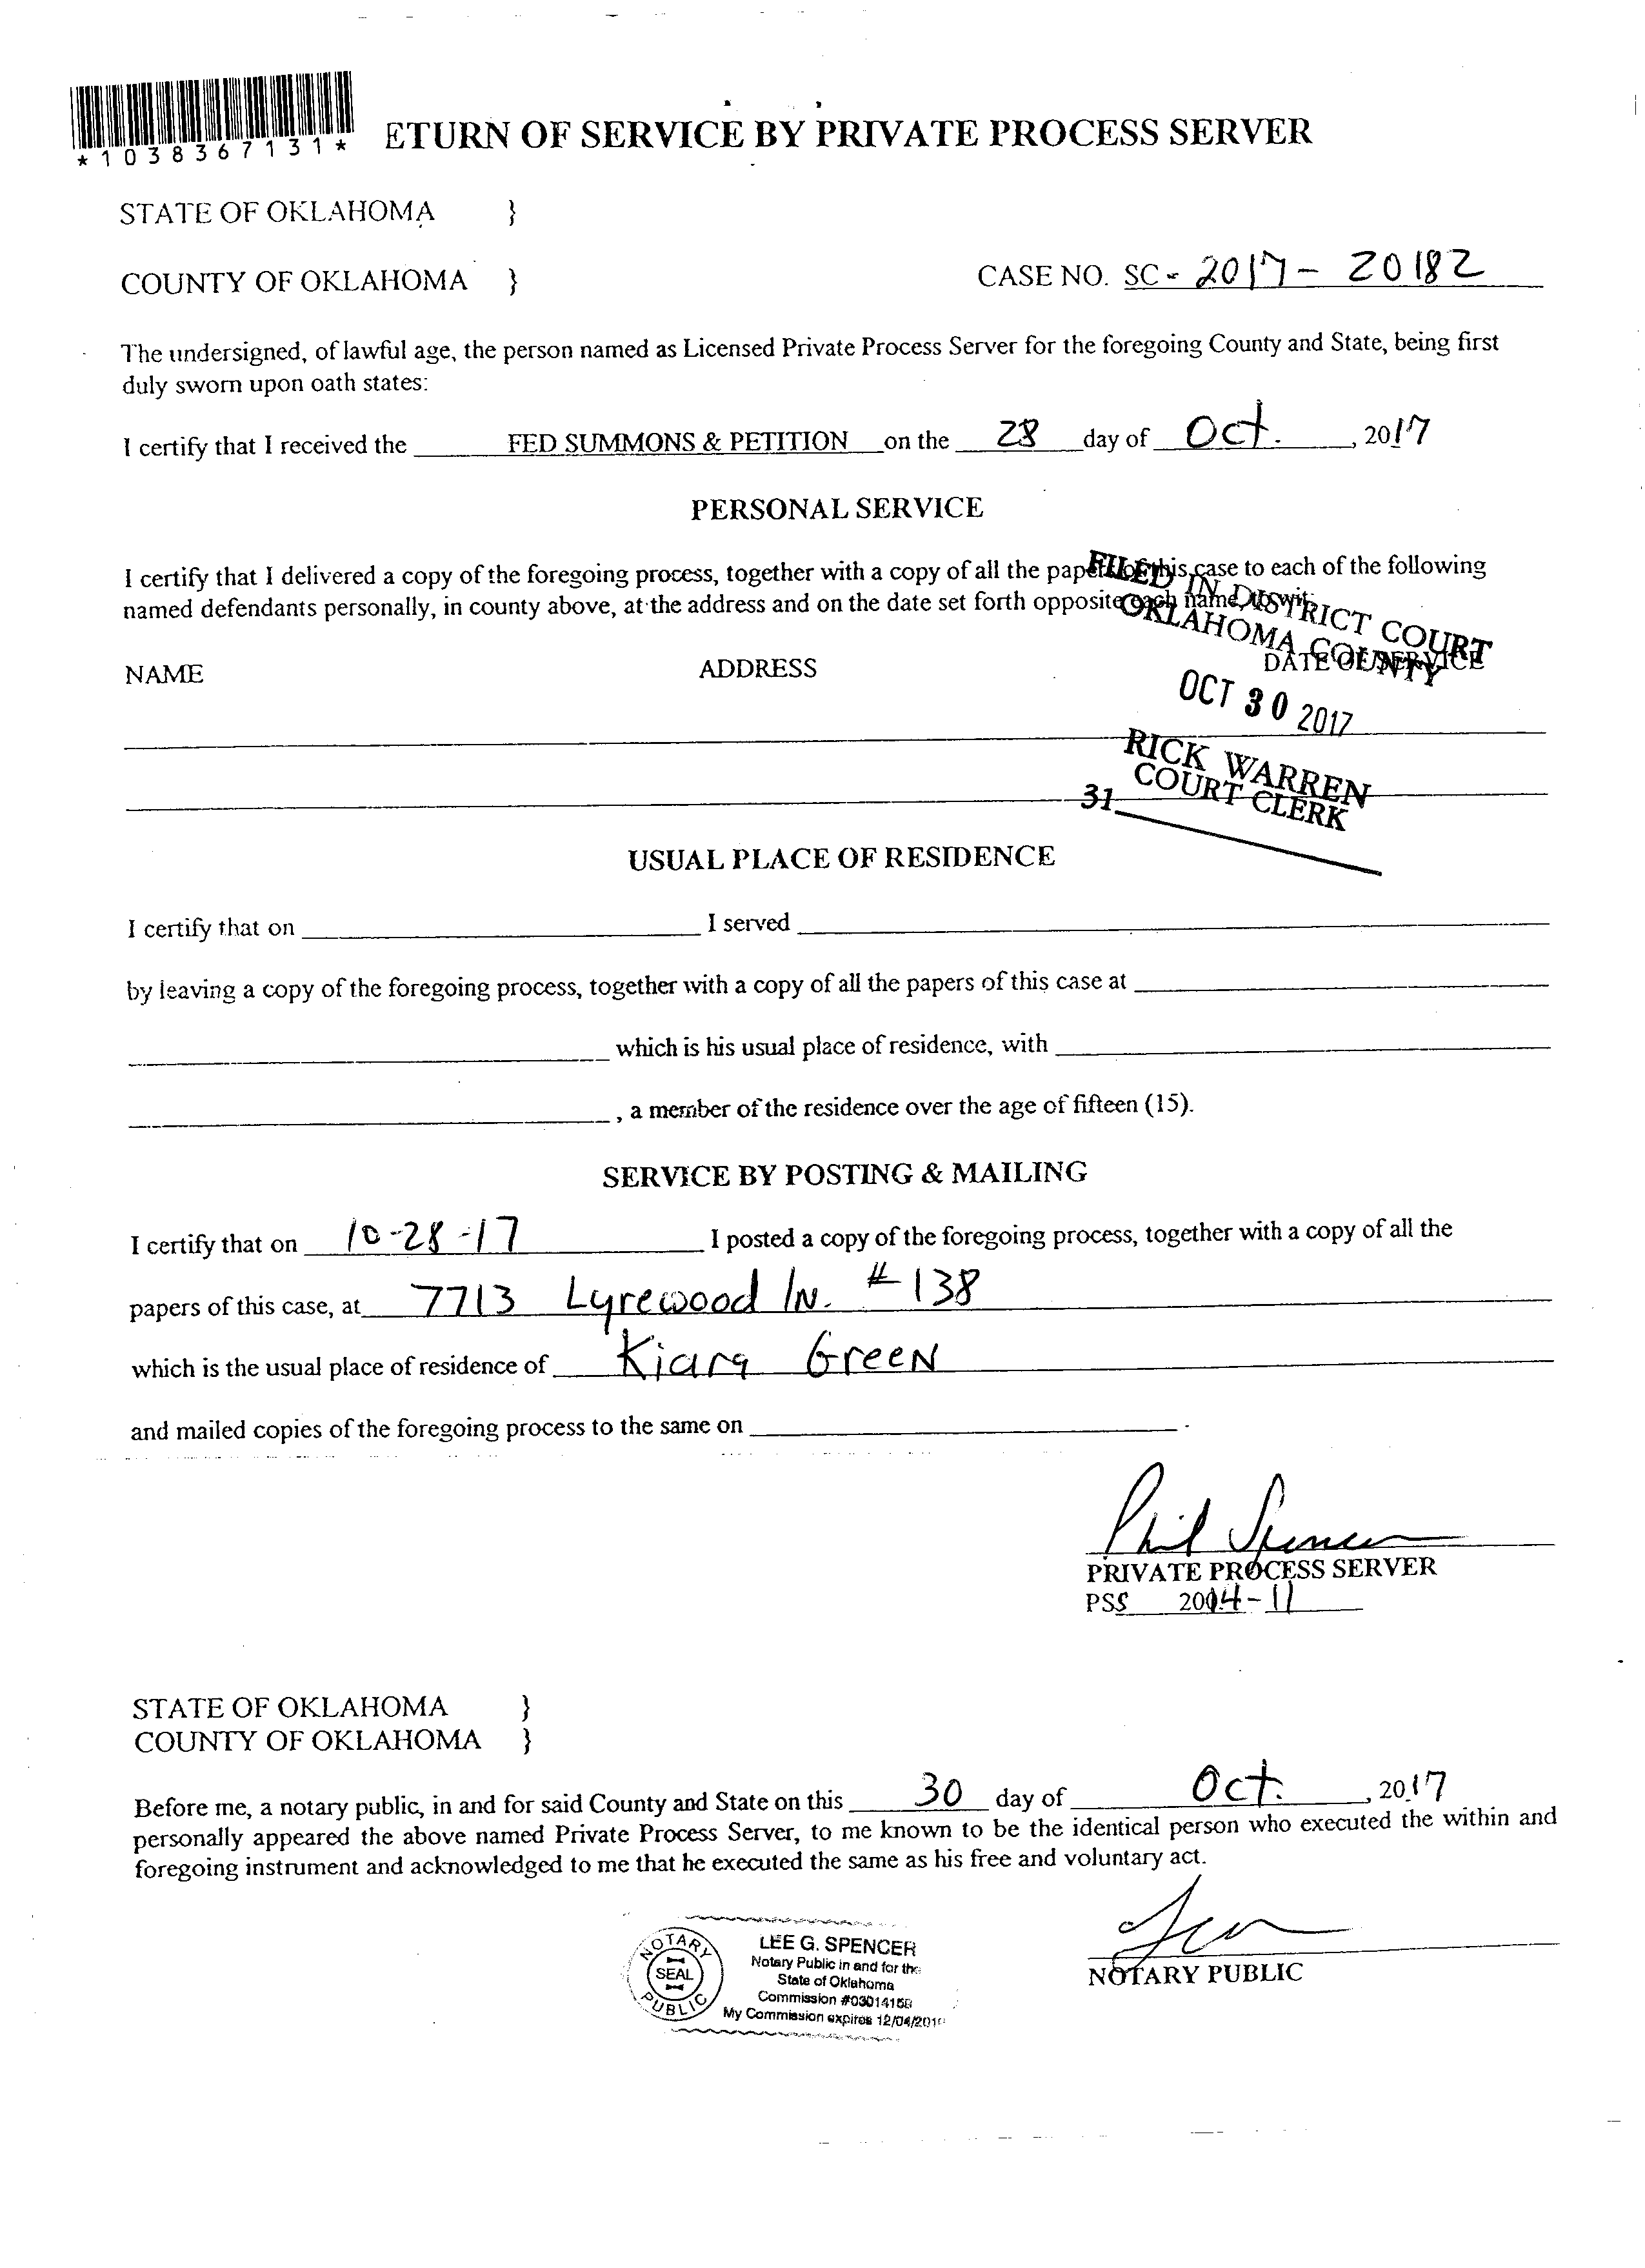 *1038367131*
ETURN OF SERVICE BY PRIVATE PROCESS SERVER
STATE OF OKLAHOMA }
COUNTY OF OKLAHOMA } CASE NO. SC - 2017 - 20182
The undersigned, of lawful age, the person named as Licensed Private Process Server for the foregoing County and State, being first
duly sworn upon oath states:
I certify that I received the FED SUMMONS & PETITION on the 28 day of Oct. , 2017
PERSONAL SERVICE
I certify that I delivered a copy of the foregoing process, together with a copy of all the papers of this case to each of the following
named defendants personally, in county above, at the address and on the date set forth opposite each name, to wit:
FILED IN DISTRICT COURT
OKLAHOMA COUNTY
NAME ADDRESS DATE OF SERVICE
OCT 30 2017
RICK WARREN
COURT CLERK
31
USUAL PLACE OF RESIDENCE
I certify that on I served
by leaving a copy of the foregoing process, together with a copy of all the papers of this case at
which is his usual place of residence, with
, a member of the residence over the age of fifteen (15).
SERVICE BY POSTING & MAILING
I certify that on 10-28-17 I posted a copy of the foregoing process, together with a copy of all the
papers of this case, at 7713 Lyrewood ln. #138
which is the usual place of residence of Kiara Green
and mailed copies of the foregoing process to the same on .
Phil Spencer
PRIVATE PROCESS SERVER
PSS 2004-11
STATE OF OKLAHOMA }
COUNTY OF OKLAHOMA }
Before me, a notary public, in and for said County and State on this 30 day of Oct. , 2017
personally appeared the above named Private Process Server, to me known to be the identical person who executed the within and
foregoing instrument and acknowledged to me that he executed the same as his free and voluntary act.
NOTARY PUBLIC
NOTARY PUBLIC
SEAL
LEE G. SPENCER
Notary Public in and for the
State of Oklahoma
Commission
My Commission expires